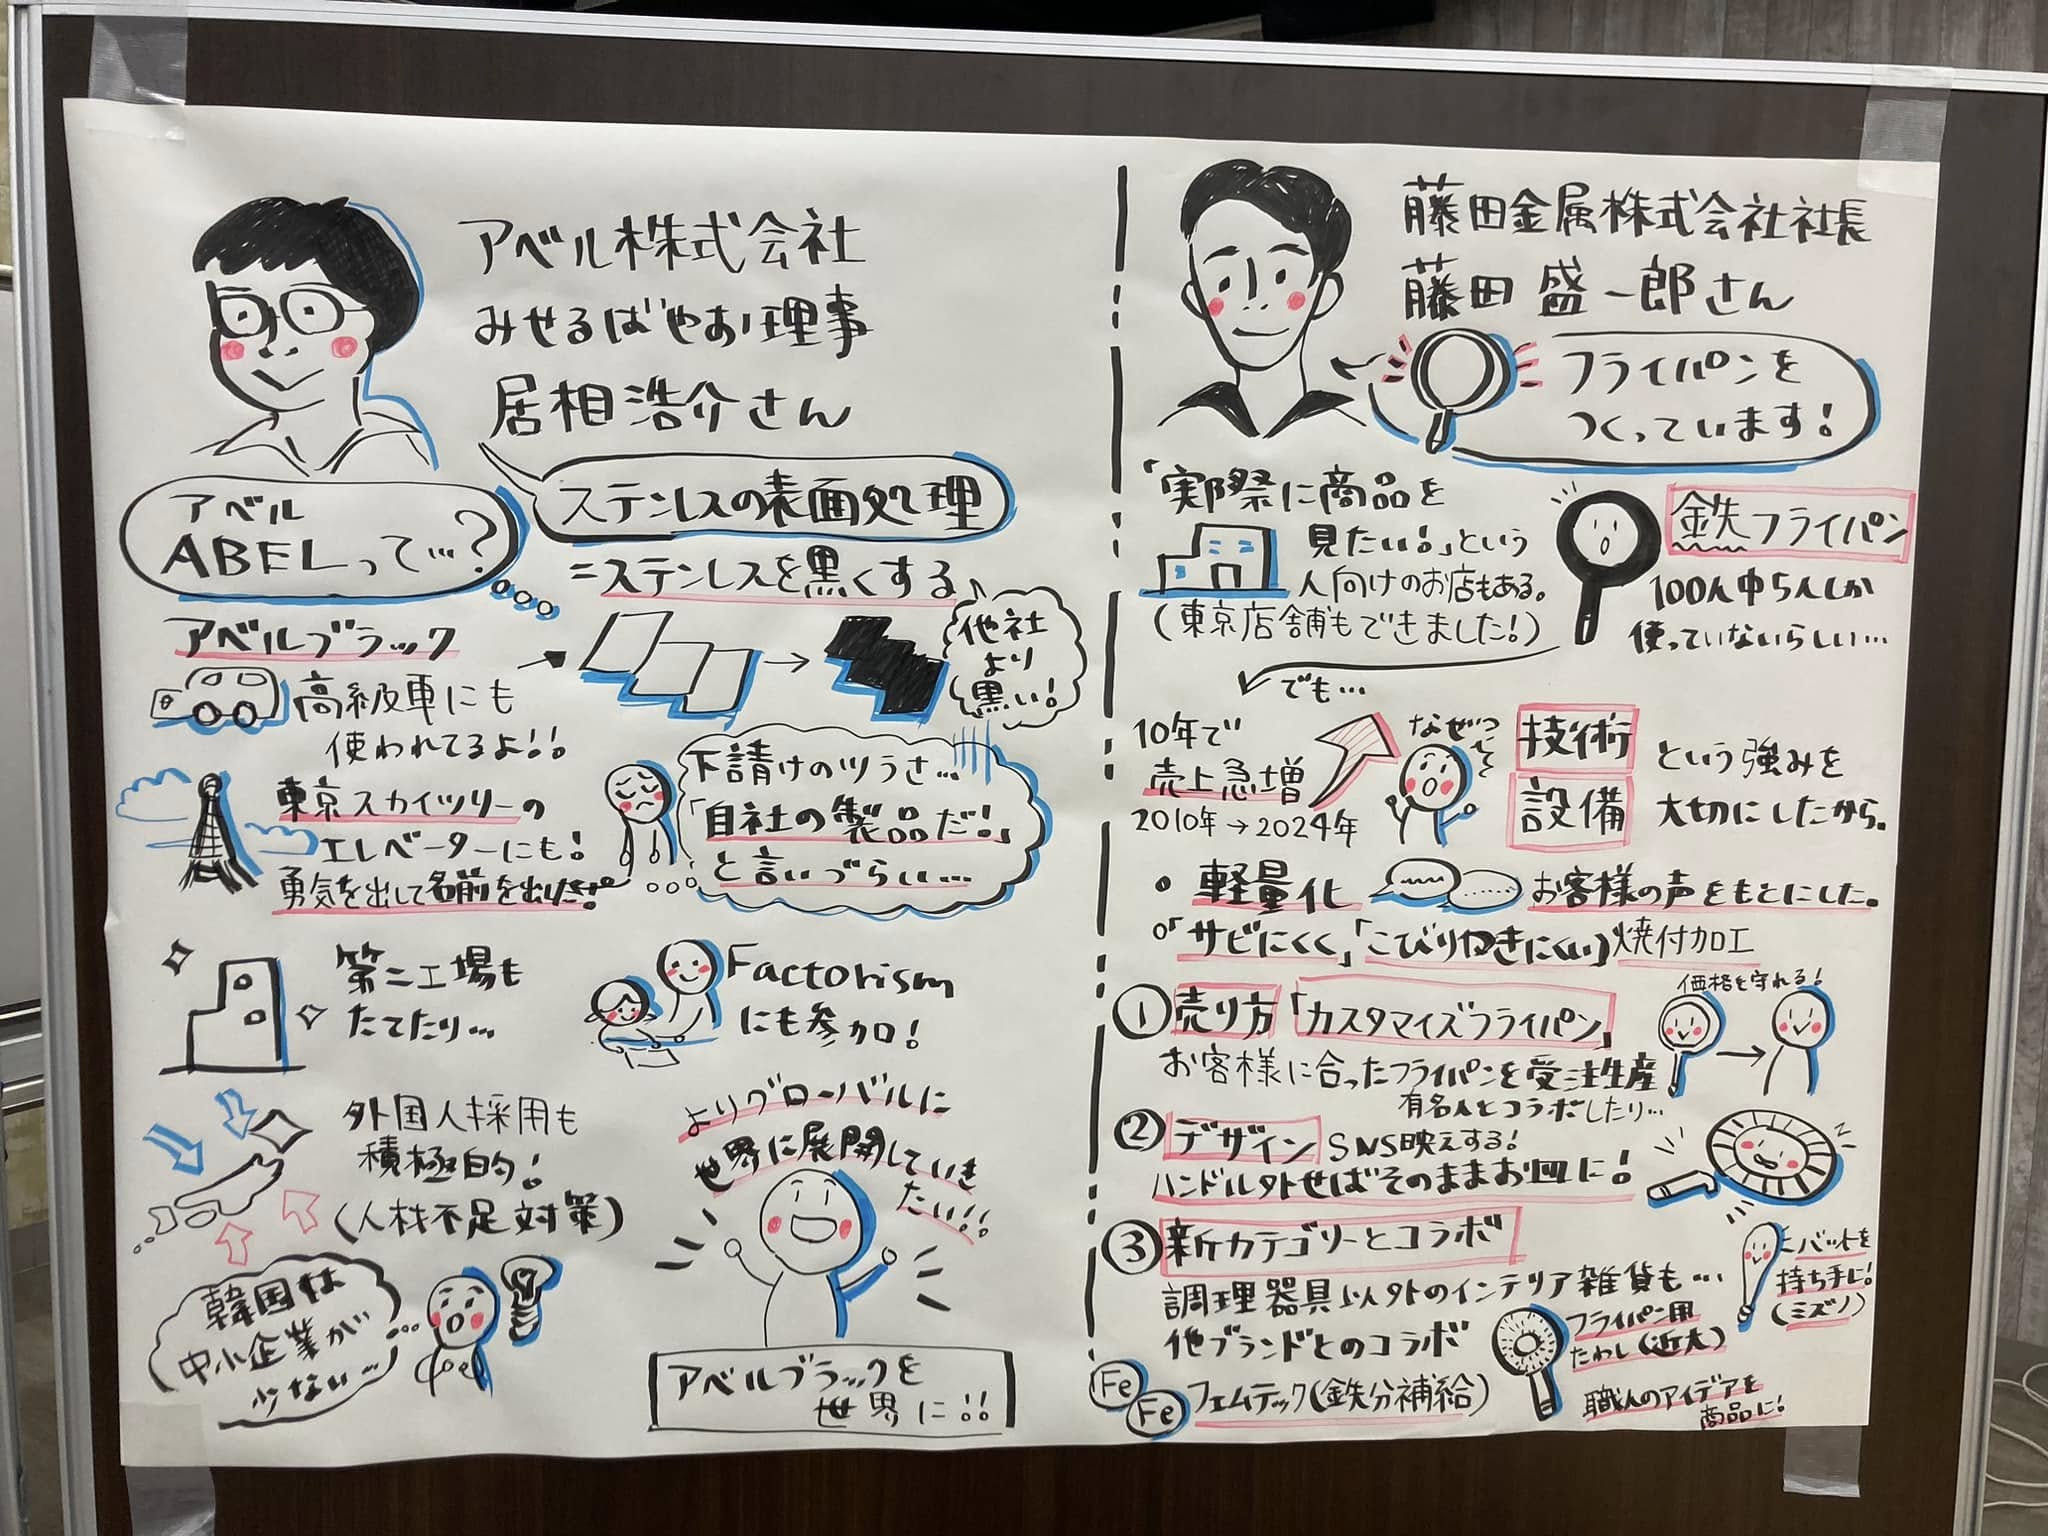 アベル株式会社
みせるばやお理事
居相浩介さん
アベル
ABELって…?
ステンレスの表面処理
=ステンレスを黒くする
他社
より
黒い!
アベルブラック
高級車にも
使われてるよ!!
東京スカイツリーの
エレベーターにも!
勇気を出して名前を出した!
下請けのツラさ…
「自社の製品だ!」
と言いづらい…
第二工場も
たてたり…
Factorism
にも参加!
外国人採用も
積極的!
(人材不足対策)
韓国は
中小企業が
少ない…
よりグローバルに
世界に展開していき
たい!!
アベルブラックを
世界に!!
藤田金属株式会社社長
藤田盛一郎さん
フライパンを
つくっています!
「実際に商品を
見たい!」という
人向けのお店もある。
(東京店舗もできました!)
鉄フライパン
100人中5人しか
使っていないらしい…
でも…
10年で
売上急増
2010年→2024年
なぜ
技術
設備
という強みを
大切にしたから。
・軽量化
お客様の声をもとにした。
・「サビにくく」「こびりつきにくい」焼付加工
①売り方「カスタマイズフライパン」
価格を守れる!
お客様に合ったフライパンを受注生産
有名人とコラボしたり…
②デザイン SNS映えする!
ハンドル外せばそのままお皿に!
③新カテゴリーとコラボ
調理器具以外のインテリア雑貨も…
他ブランドとのコラボ
バットを
持ち手に!
(ミズノ)
フライパン用
たわし(近大)
Fe
Fe
フェムテック(鉄分補給)
職人のアイデアを
商品に!